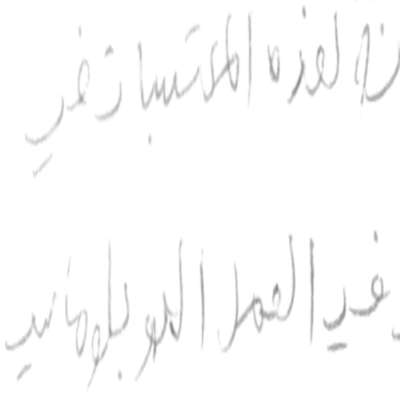 لهذه المكتسبات في
في العمل الدبلوماسي